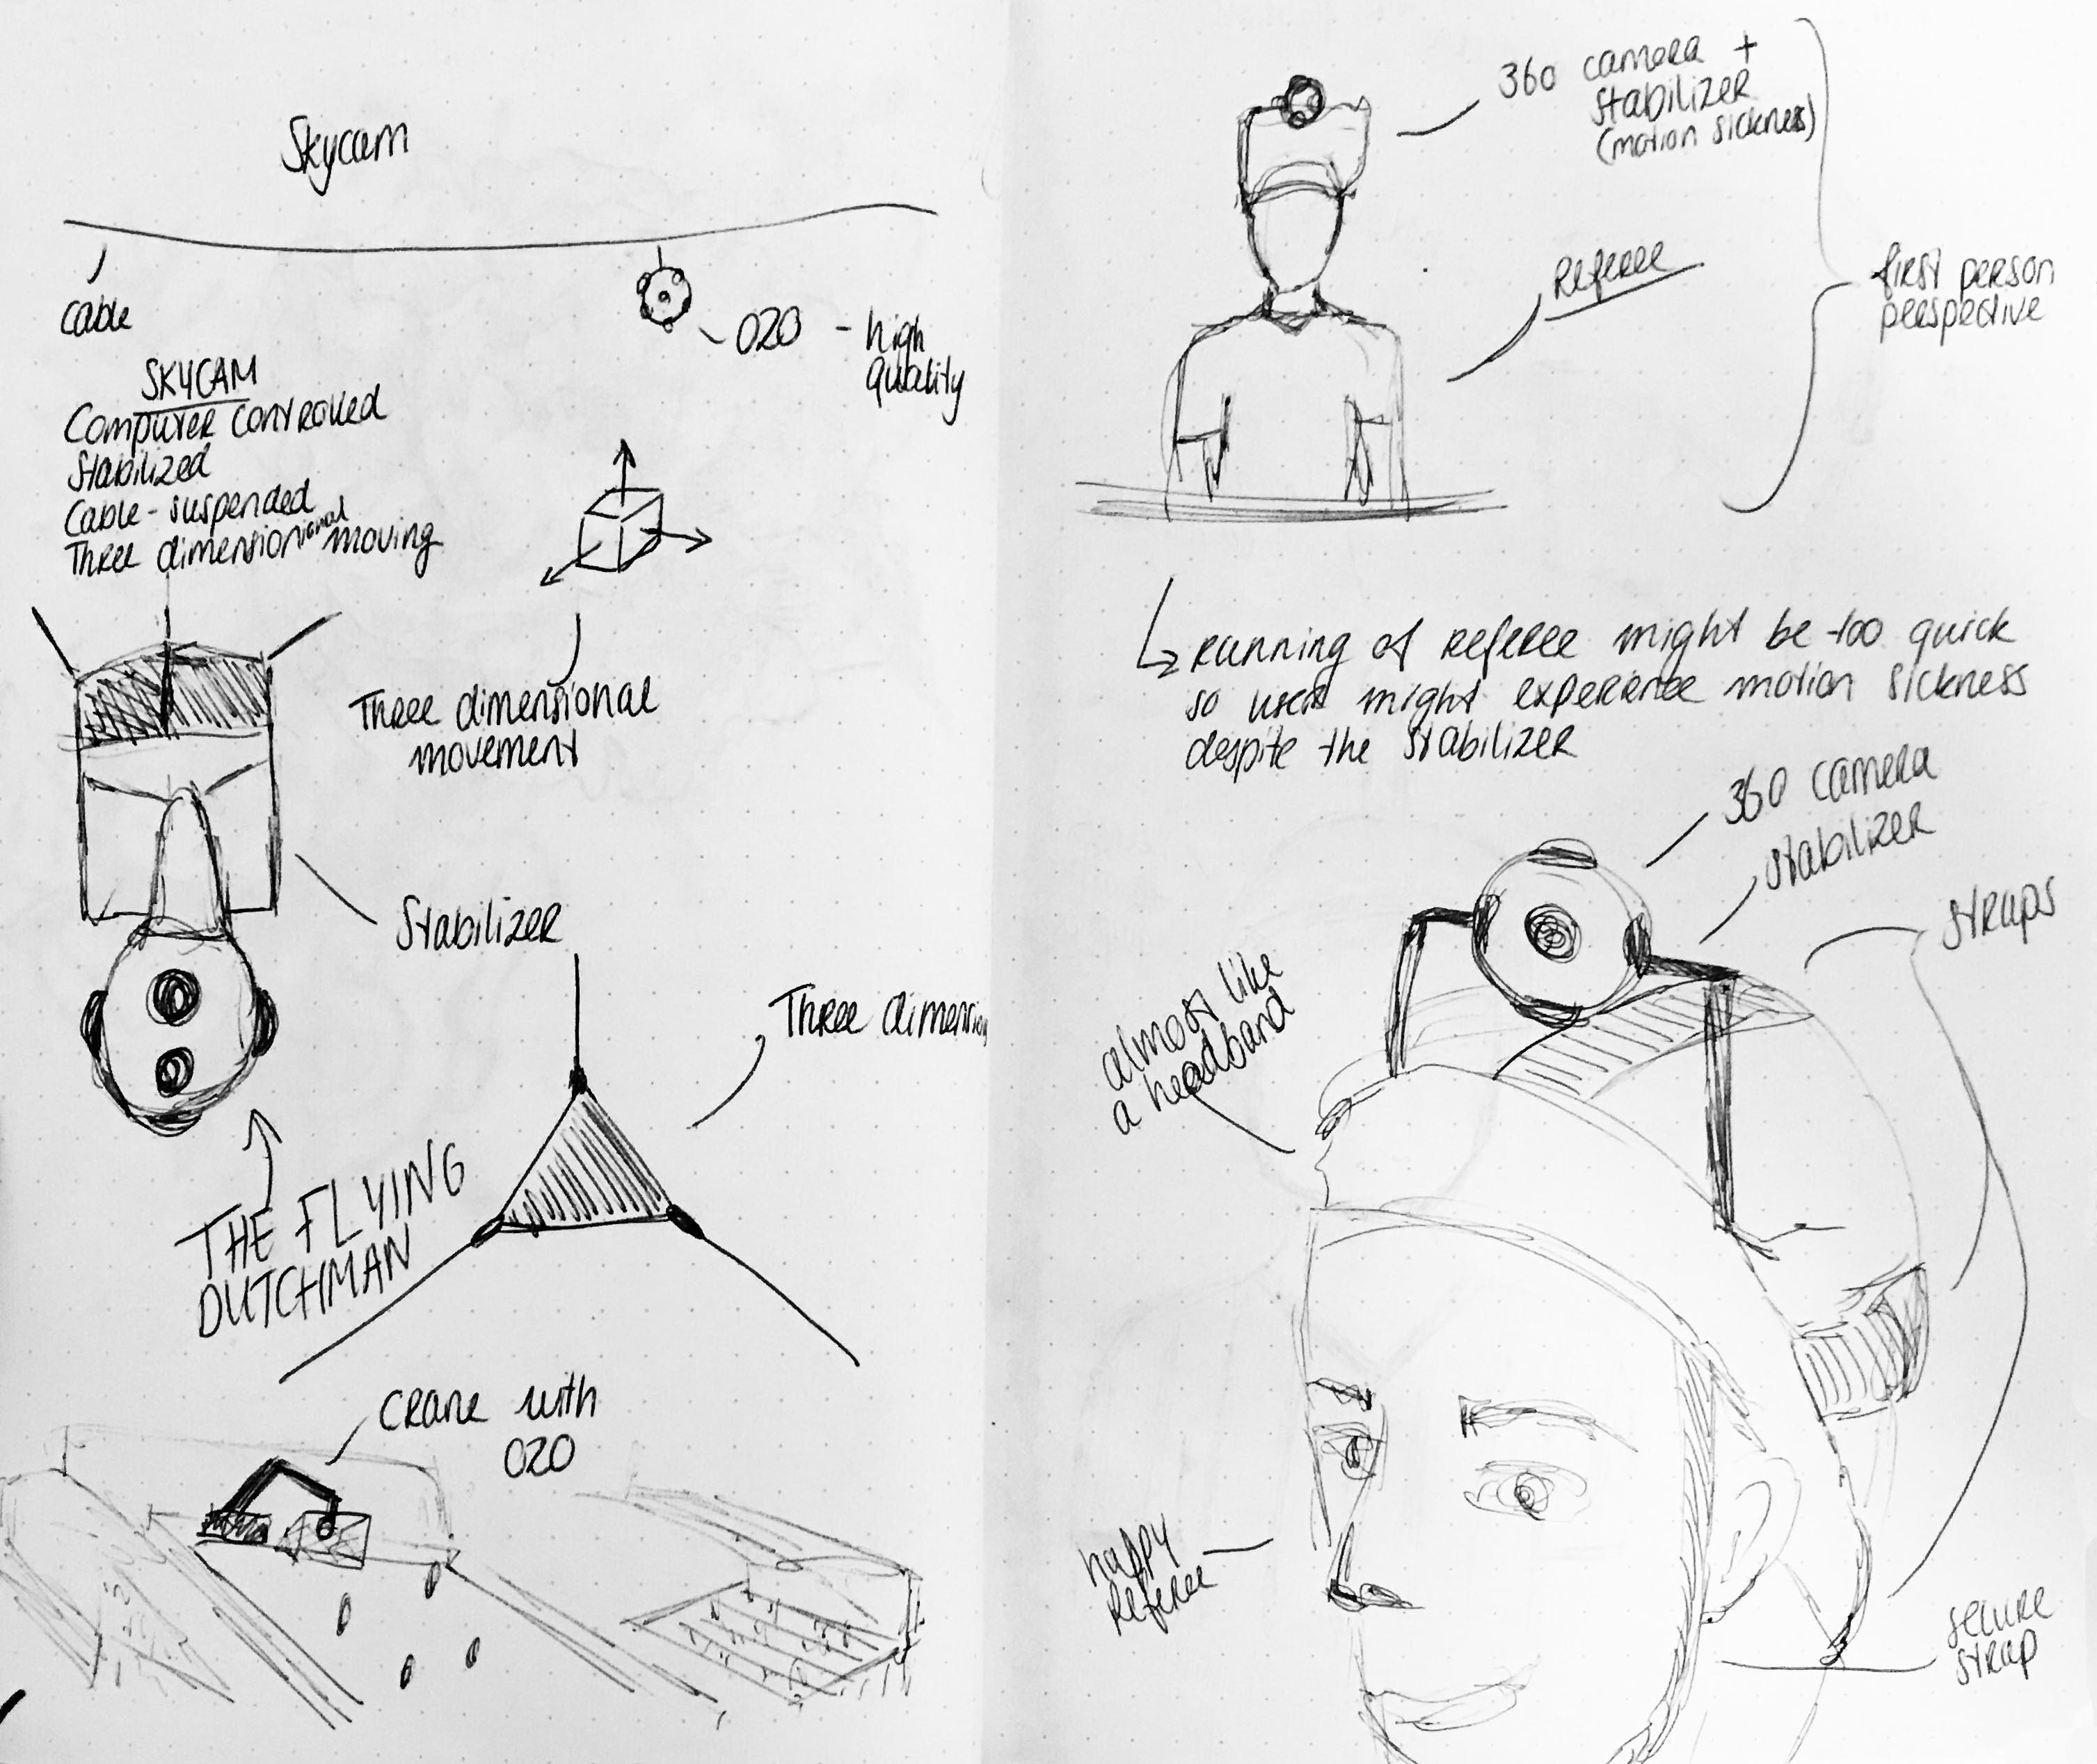 Skycam
cable
OZO - high
quality
SKYCAM
Computer controlled
Stabilized
Cable-suspended
Three dimensional moving
Three dimensional
movement
Stabilizer
Three dimension
THE FLYING
DUTCHMAN
Crane with
OZO
360 camera +
stabilizer
(motion sickness)
Referee
first person
perspective
running of referee might be too quick
so users might experience motion sickness
despite the stabilizer
360 camera
stabilizer
straps
almost like
a headband
happy
referee
secure
strap